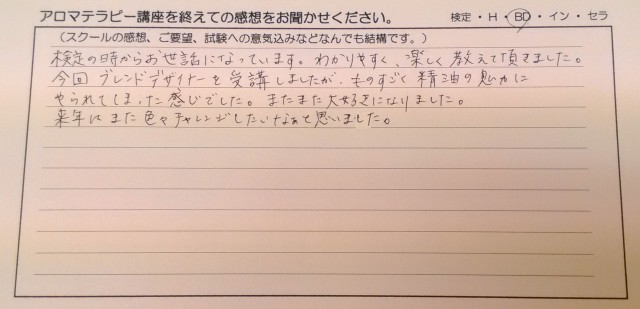 アロマテラピー講座を終えての感想をお聞かせください。 検定・H・BD・イン・セラ
(スクールの感想、ご要望、試験への意気込みなどなんでも結構です。)
検定の時からお世話になっています。わかりやすく、楽しく教えて頂きました。
今回ブレンドデザイナーを受講しましたが、ものすごく精油の魅力に
やられてしまった感じでした。またまた大好きになりました。
来年はまた色々チャレンジしたいなぁと思いました。